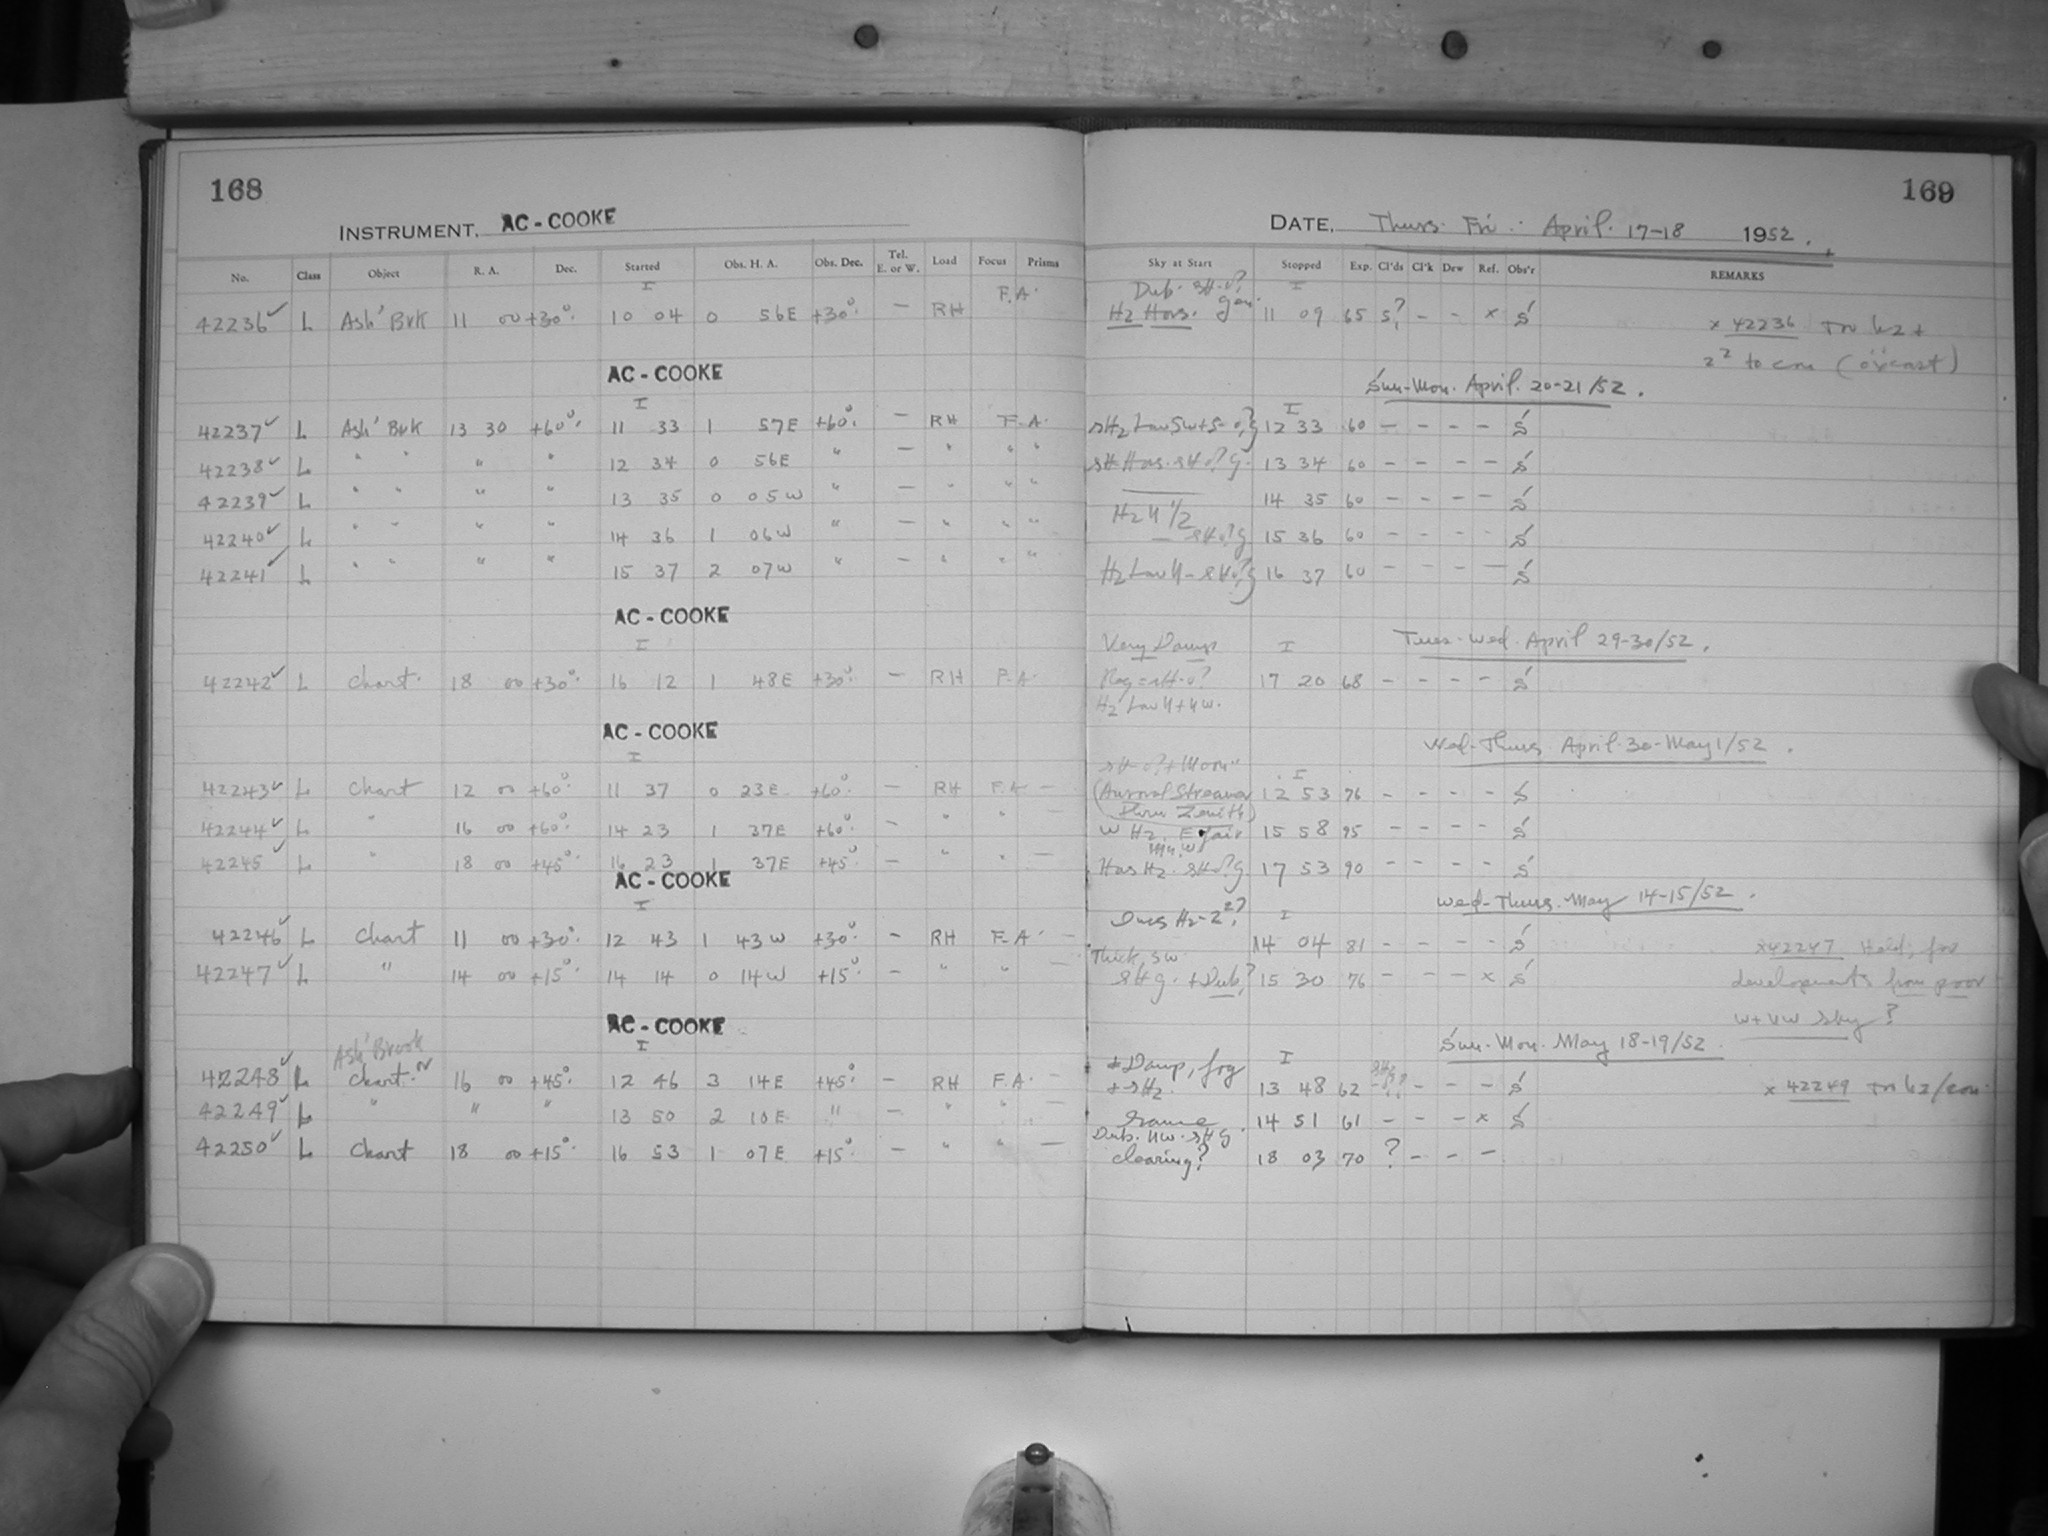 168
INSTRUMENT, AC - COOKE
No. Class Object R. A. Dec. Started Obs. H. A. Obs. Dec. Tel. E. or W. Load Focus Prisms
I F.A.
42236 ✓ L Ash' Brk 11 00 +30° 10 04 0 56E +30° — RH
AC - COOKE
I
42237 ✓ L Ash' Brk 13 30 +60° 11 33 1 57E +60° — RH F.A.
42238 ✓ L " " " " 12 34 0 56E " — " " "
42239 ✓ L " " " " 13 35 0 05W " — " " "
42240 ✓ L " " " " 14 36 1 06W " — " " "
42241 ✓ L " " " " 15 37 2 07W " — " " "
AC - COOKE
I
42242 ✓ L Chart. 18 00 +30° 16 12 1 48E +30° — RH F.A.
AC - COOKE
I
42243 ✓ L Chart 12 00 +60° 11 37 0 23E +60° — RH F.A —
42244 ✓ L " 16 00 +60° 14 23 1 37E +60° — " " —
42245 ✓ L " 18 00 +45° 16 23 1 37E +45° — " " —
AC - COOKE
I
42246 ✓ L Chart 11 00 +30° 12 43 1 43W +30° — RH F.A. —
42247 ✓ L " 14 00 +15° 14 14 0 14W +15° — " " —
AC - COOKE
Ash' Brook I
42248 ✓ L Chart. or 16 00 +45° 12 46 3 14E +45° — RH F.A. —
42249 ✓ L " " " 13 50 2 10E " — " " —
42250 ✓ L Chart 18 00 +15° 16 53 1 07E +15° — " " —
169
DATE, Thurs. Fri. April. 17-18 1952.
Sky at Start Stopped Exp. Cl'ds Cl'k Dew Ref. Obs'r REMARKS
I
Hz Hors. 11 09 65 S? - - x S
x 42236
Sun-Mon. April. 20-21/52.
I
12 33 60 - - - - S
13 34 60 - - - - S
14 35 60 - - - - S
15 36 60 - - - - S
16 37 60 - - - - S
Very Damp I Tues-Wed. April 29-30/52.
17 20 68 - - - - S
Wed-Thurs April-30-May 1/52.
I
(Auroral Streamer 12 53 76 - - - - S
Thru Zenith)
W Hz. E fair 15 58 95 - - - - S
17 53 90 - - - - S
Wed-Thurs. May 14-15/52.
I
14 04 81 - - - - S
x42247 Held, for
Thick, SW
15 30 76 - - - x S
developments from poor
W + NW sky?
Sun-Mon. May 18-19/52
+Damp, fog I
13 48 62 - - - S
x 42249
Same 14 51 61 - - - x S
clearing? 18 03 70 ? - - -